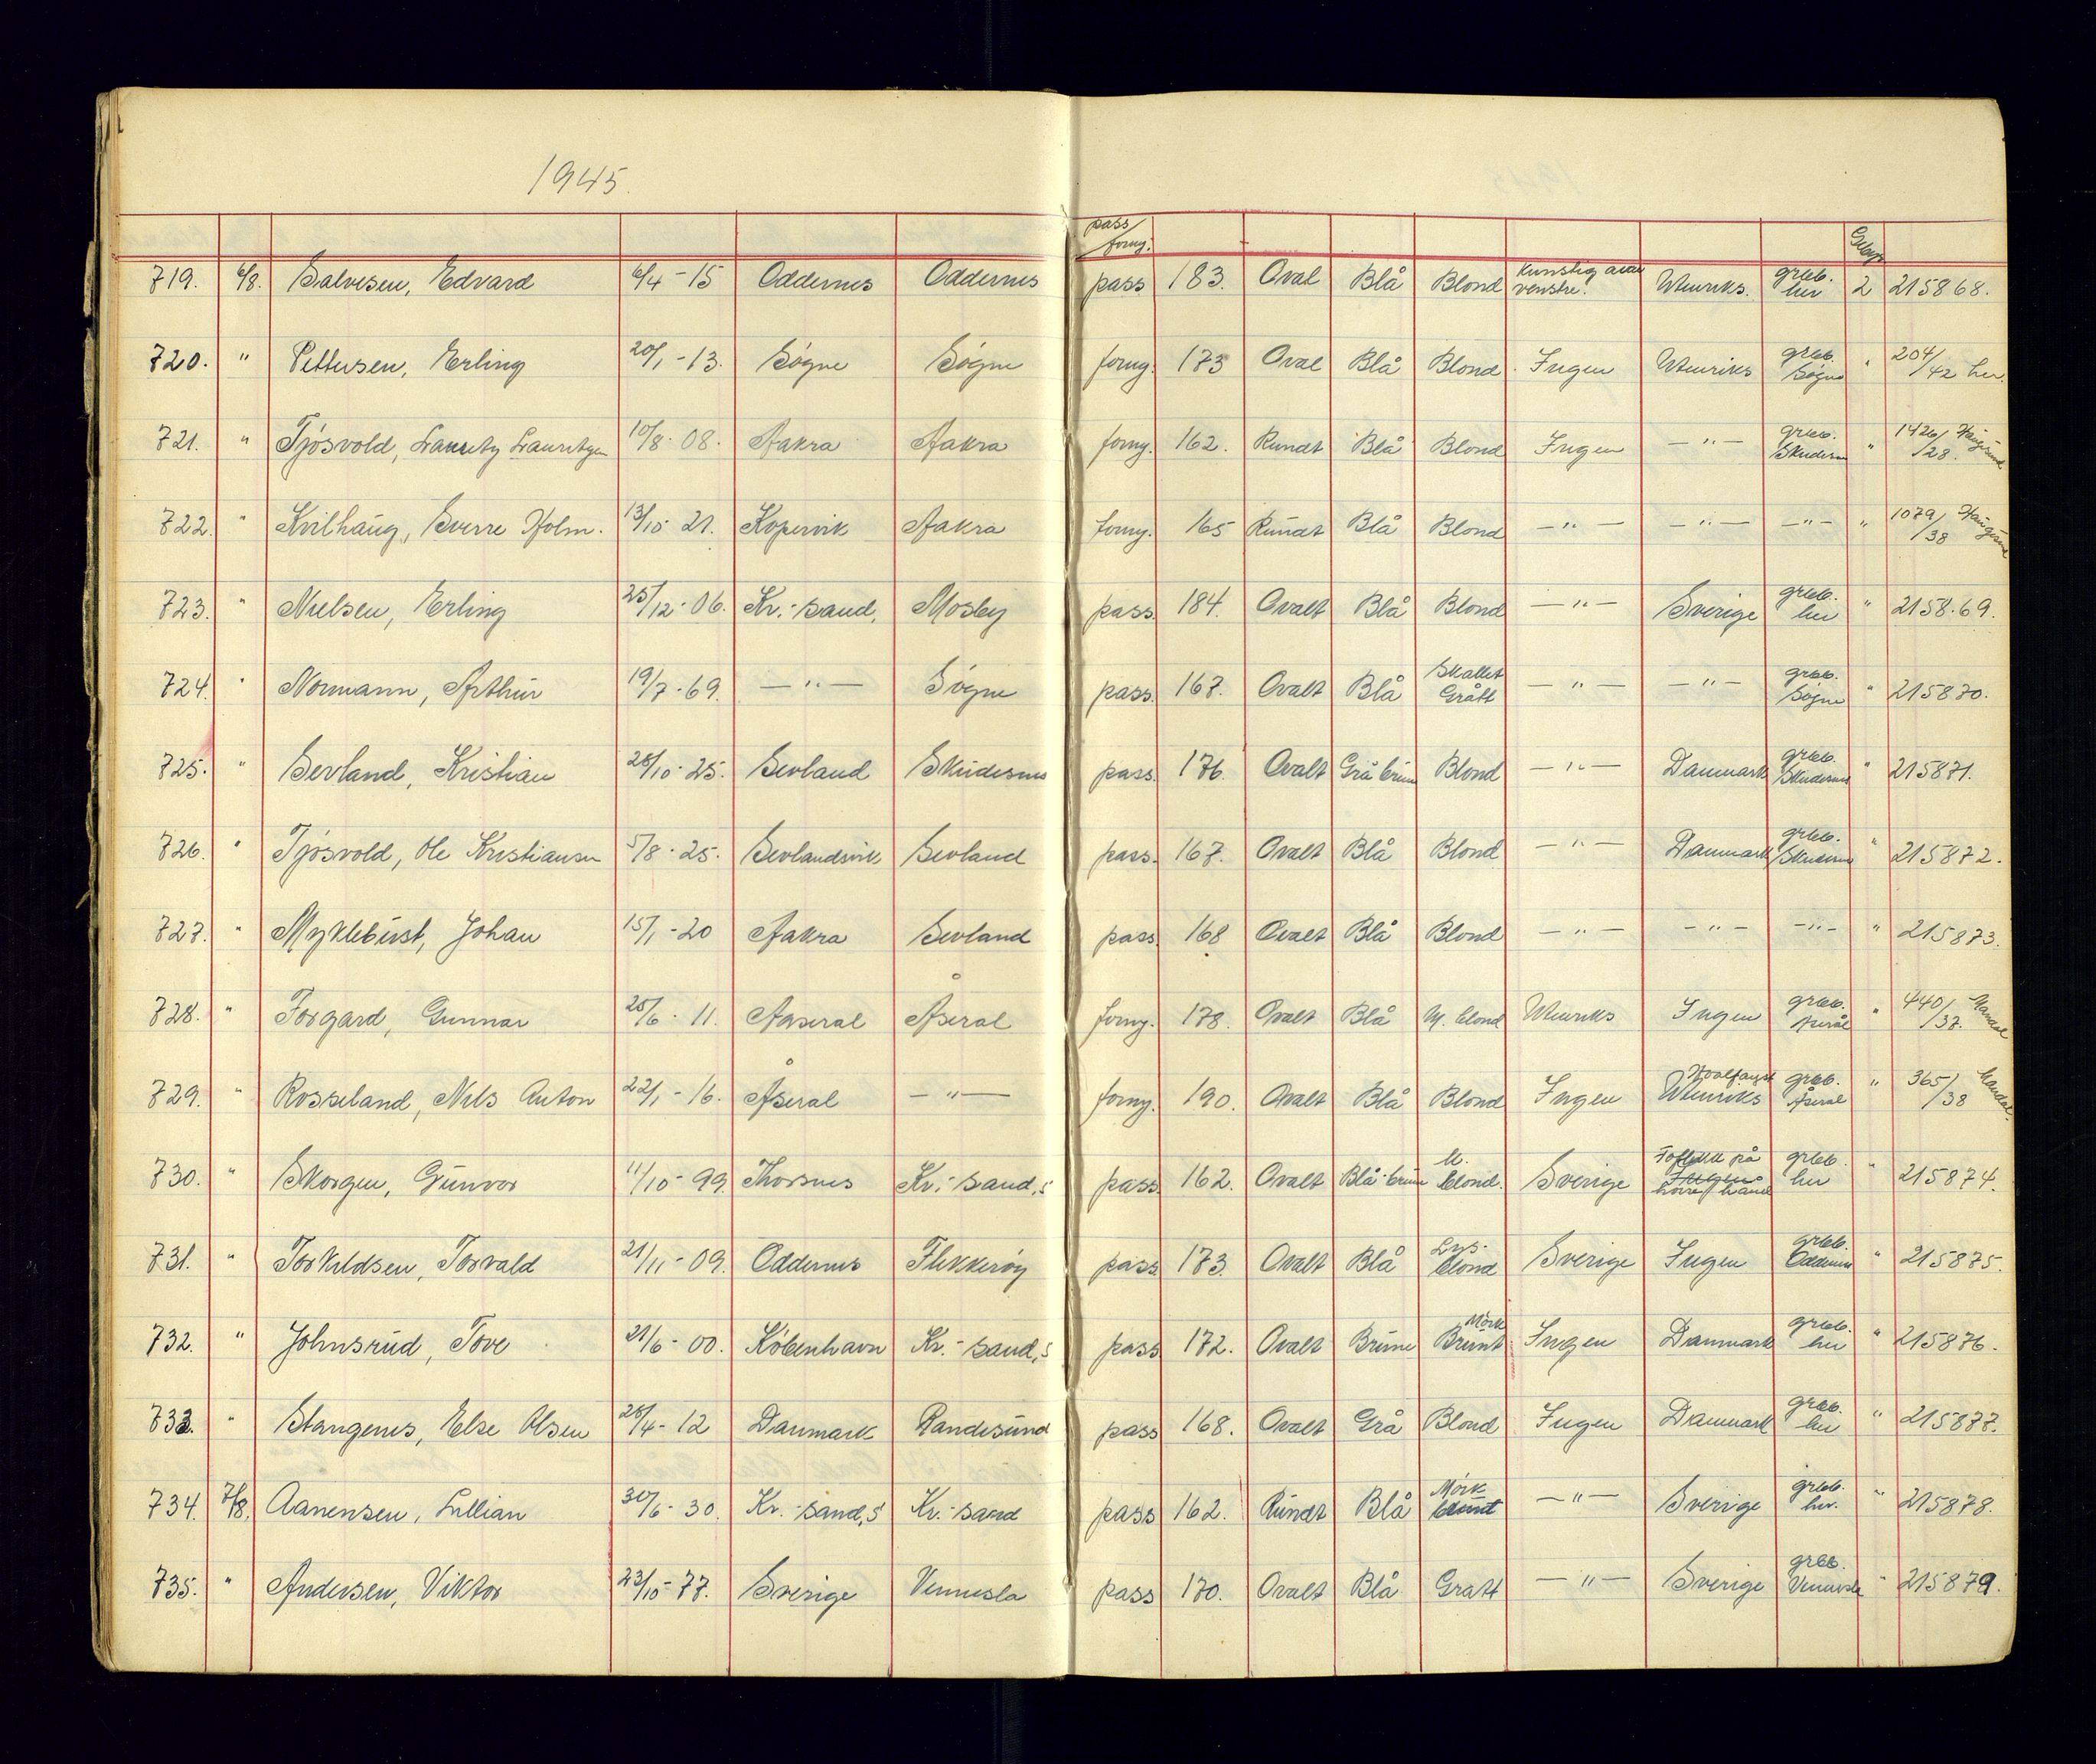 1945.
pass / forny. Gebyr
719. 6/8. Salvesen, Edvard 6/4-15 Oddernes Oddernes pass 183. Oval Blå Blond Kunstig venstre. Utenriks. greb. her 2 215868.
720. " Pettersen, Erling 20/1-13. Søgne Søgne forny. 173 Oval Blå Blond. Ingen Utenriks greb. Søgne " 204/42 her.
721. " Tjøsvold, Lauritz Lauritzen 10/8-08. Aakra Aakra forny. 162. Rundt Blå Blond Ingen —"— greb. Skudesn " 1426/28. Haugesund
722. " Kvilhaug, Sverre Holm. 13/10 21. Kopervik Aakra forny. 165 Rundt Blå Blond —"— —"— —"— " 1079/38 Haugesund
723. " Nielsen, Erling 25/12-06. Kr.-sand, Mosby pass. 184. Ovalt Blå Blond —"— Sverige greb. her " 215869.
724. " Normann, Arthur 19/7-69. —"— Søgne pass. 167. Ovalt Blå Skallet Grått —"— —"— greb. Søgne " 215870.
725. " Sevland, Kristian 28/10-25. Sevland Skudesnes pass. 176. Ovalt Grå brun Blond —"— Danmark greb. Skudesnes " 215871.
726. " Tjøsvold, Ole Kristiansen 5/8-25. Sevlandsvik Sevland pass. 167. Ovalt Blå Blond —"— Danmark greb. Skudesnes " 215872.
727. " Myklebust, Johan 15/1-20 Aakra Sevland pass. 168 Ovalt Blå Blond —"— —"— —"— " 215873.
728. " Forgard, Gunnar 25/6-11. Aaseral Åseral forny. 178. Ovalt Blå M. blond Utenriks Ingen greb. Åserål " 440/37. Mandal
729. " Rosseland, Nils Anton 22/1-16. Åseral —"— forny. 190. Ovalt Blå Blond Ingen Hvalfangst Utenriks greb. Åseral " 365/38 Mandal.
730. " Skorgen, Gunvor 11/10-99. Thorsnes Kr.-sand, S pass. 162. Ovalt Blå-brun M. blond. Sverige på Ingen høire hånd greb. her " 215874.
731. " Torkildsen, Torvald 21/11-09. Oddernes Flekkerøy pass. 173. Ovalt Blå Lys-blond Sverige Ingen greb. Oddernes " 215875.
732. " Johnsrud, Tove 21/6-00. København Kr.-sand, S pass 172. Ovalt Brune Mørk Brunt Ingen Danmark greb. her " 215876.
733. " Stangenes, Else Olsen 28/4-12 Danmark Randesund pass 168. Ovalt Grå Blond Ingen Danmark greb. her " 215877.
734. 7/8. Aanensen, Lillian 30/6-30. Kr.-sand, S Kr.-sand pass 162. Rundt Blå Mørk blond —"— Sverige greb. her. " 215878.
735. " Andersen, Viktor 23/10-77. Sverige Vennesla pass 170. Ovalt Blå Grått —"— Sverige greb. Vennesla " 215879.